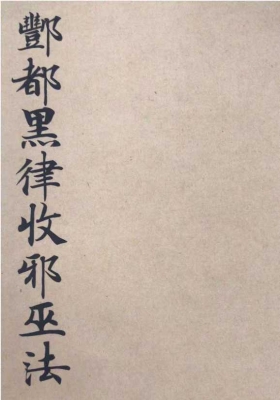 酆都黑律收邪巫法